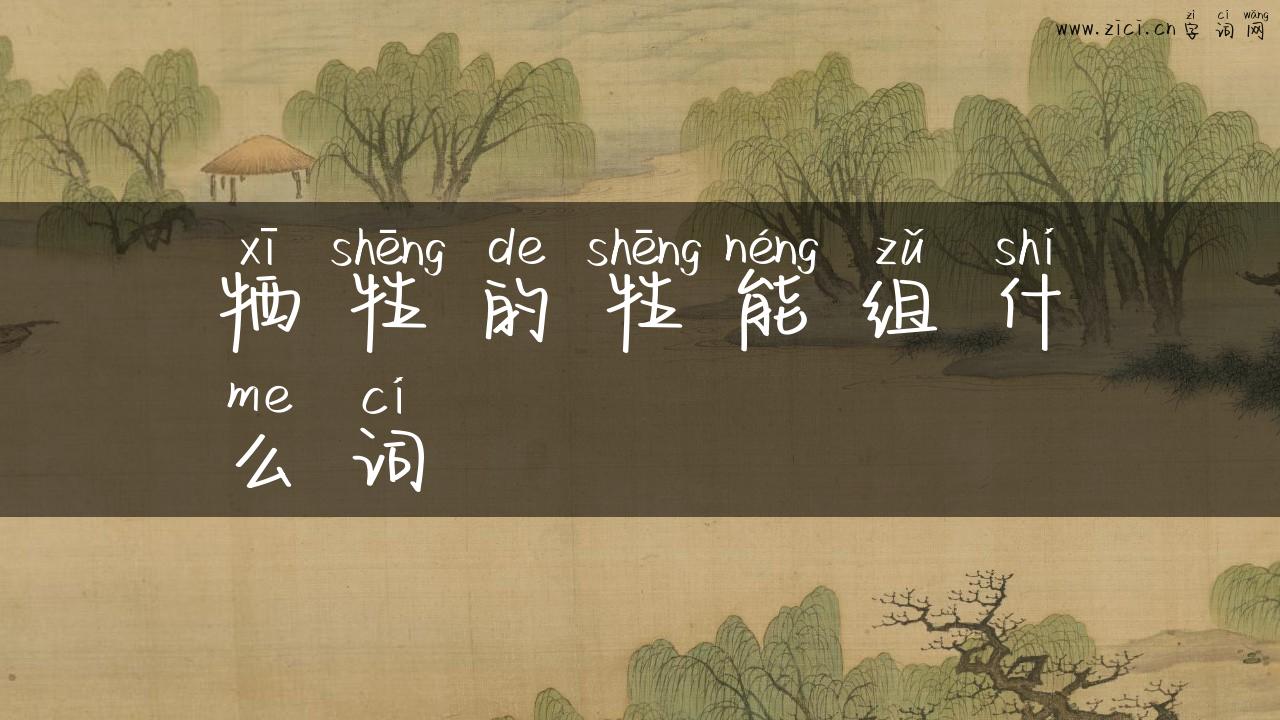 zì cí wǎng
www.zici.cn 字词网
xī shēng de shēng néng zǔ shí
牺牲的牲能组什
me cí
么词